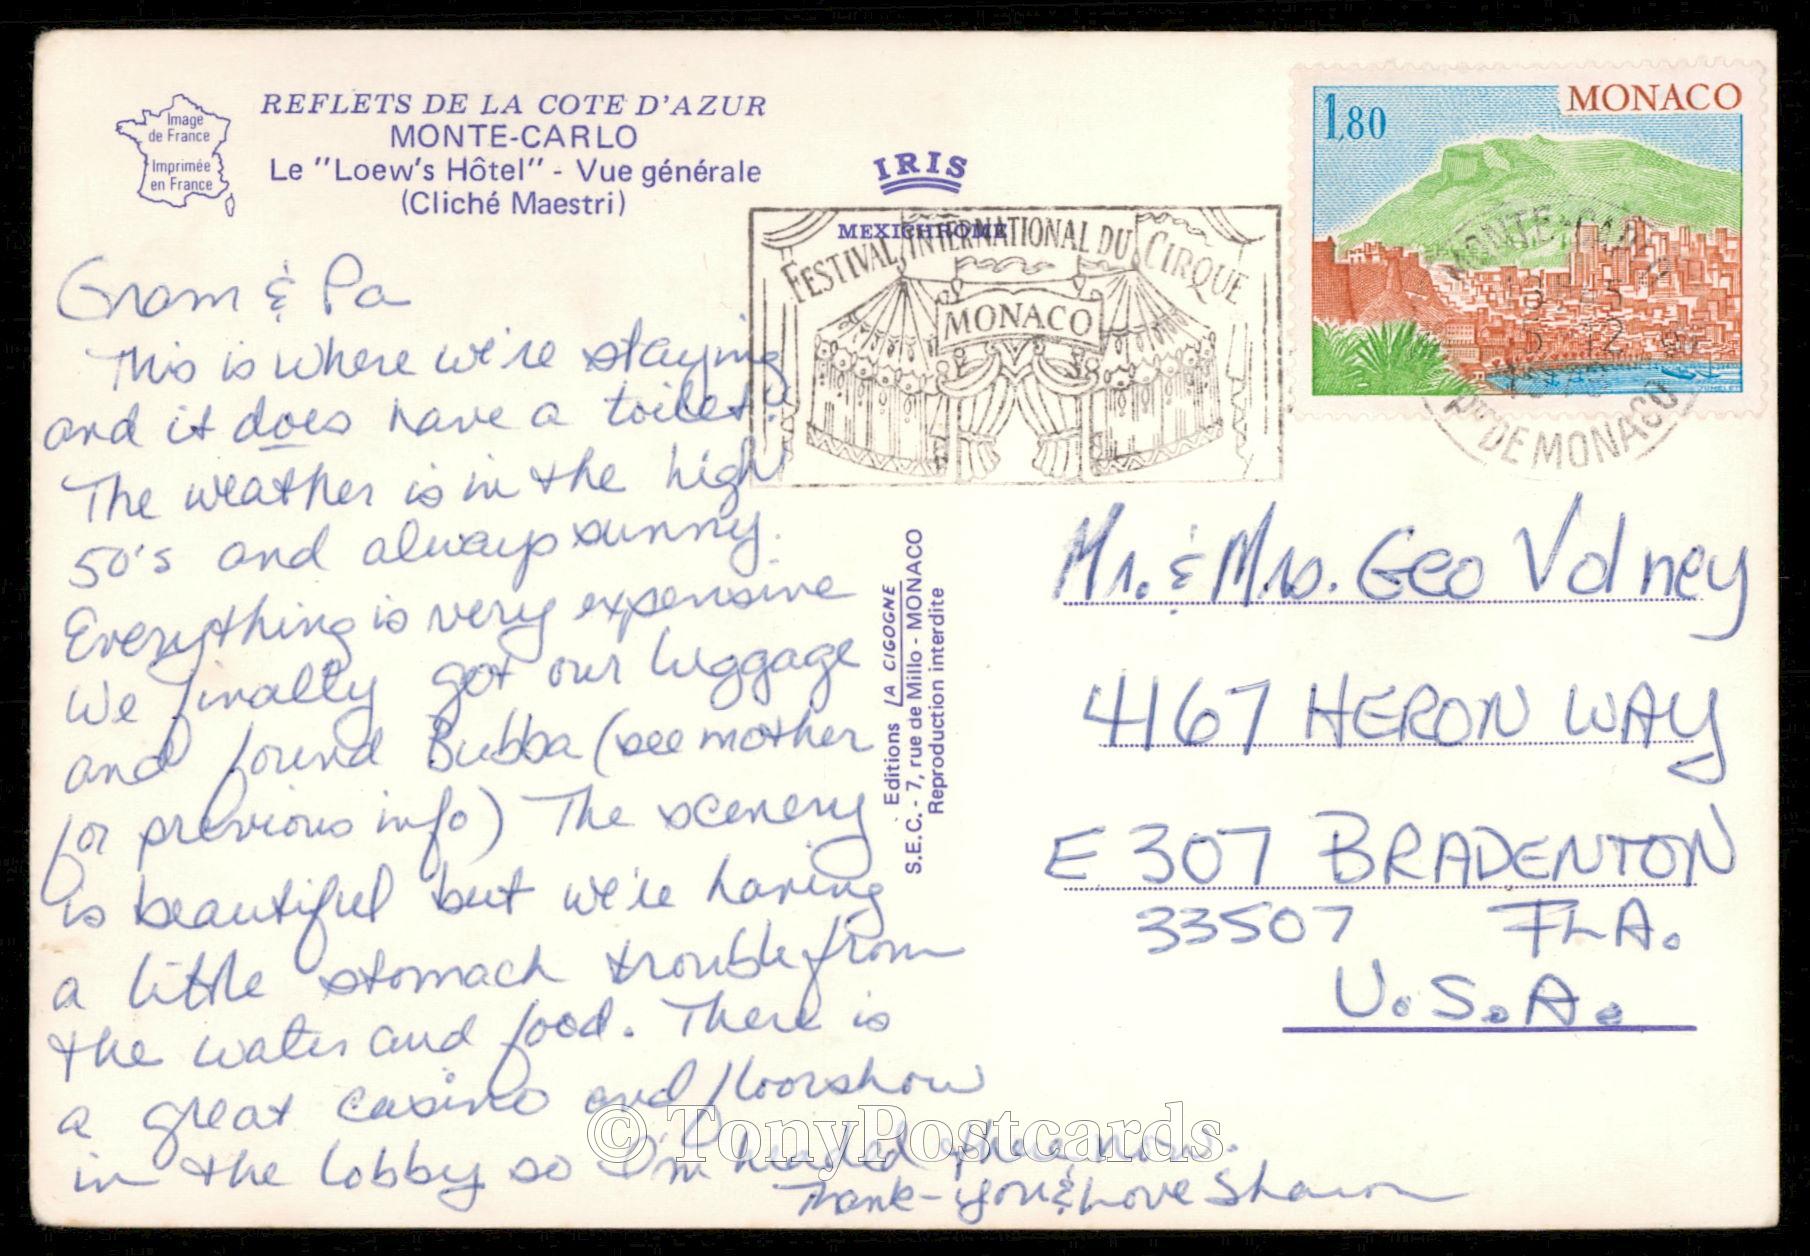 Image
de France
Imprimée
en France
REFLETS DE LA COTE D'AZUR
MONTE-CARLO
Le "Loew's Hôtel" - Vue générale
(Cliché Maestri)
IRIS
MEXICHROME
FESTIVAL INTERNATIONAL DU CIRQUE
MONACO
1,80
MONACO
MONTE-CARLO
PTE DE MONACO
Gram & Pa
This is where we're staying
and it does have a toilet!
The weather is in the high
50's and always sunny.
Everything is very expensive
We finally got our luggage
and found Bubba (see mother
for previous info) The scenery
is beautiful but we're having
a little stomach trouble from
the water and food. There is
a great casino and floorshow
in the lobby so I'm headed there now.
Thank-you & Love Sharon
Editions LA CIGOGNE
S.E.C. - 7, rue de Millo - MONACO
Reproduction interdite
Mr. & Mrs. Geo Volney
4167 HERON WAY
E 307 BRADENTON
33507 FLA.
U.S.A.
© TonyPostcards